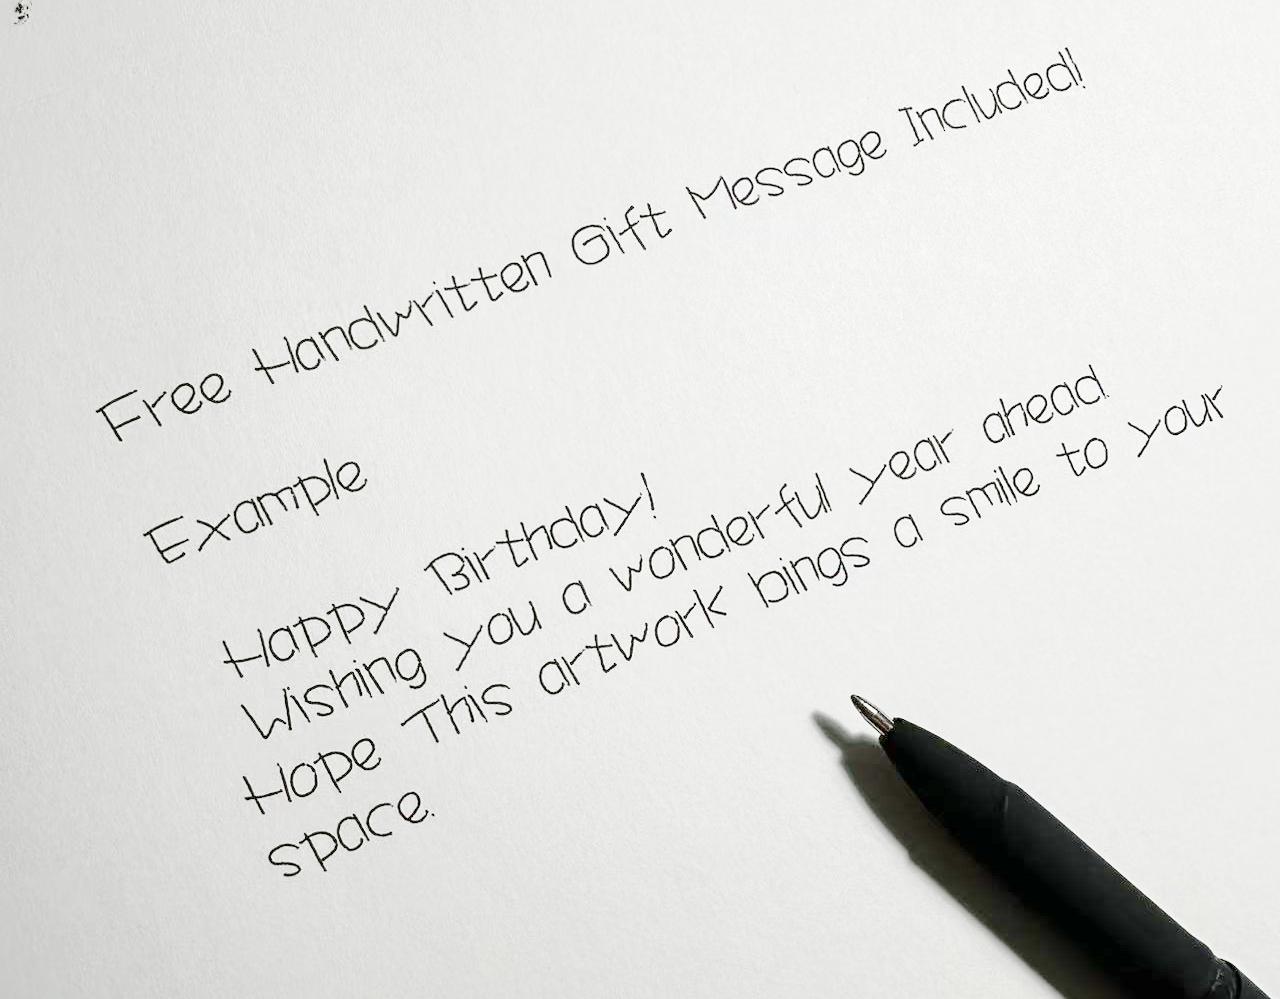 Free Handwritten Gift Message Included!
Example
Happy Birthday!
Wishing you a wonderful year ahead.
Hope This artwork bings a smile to your
space.